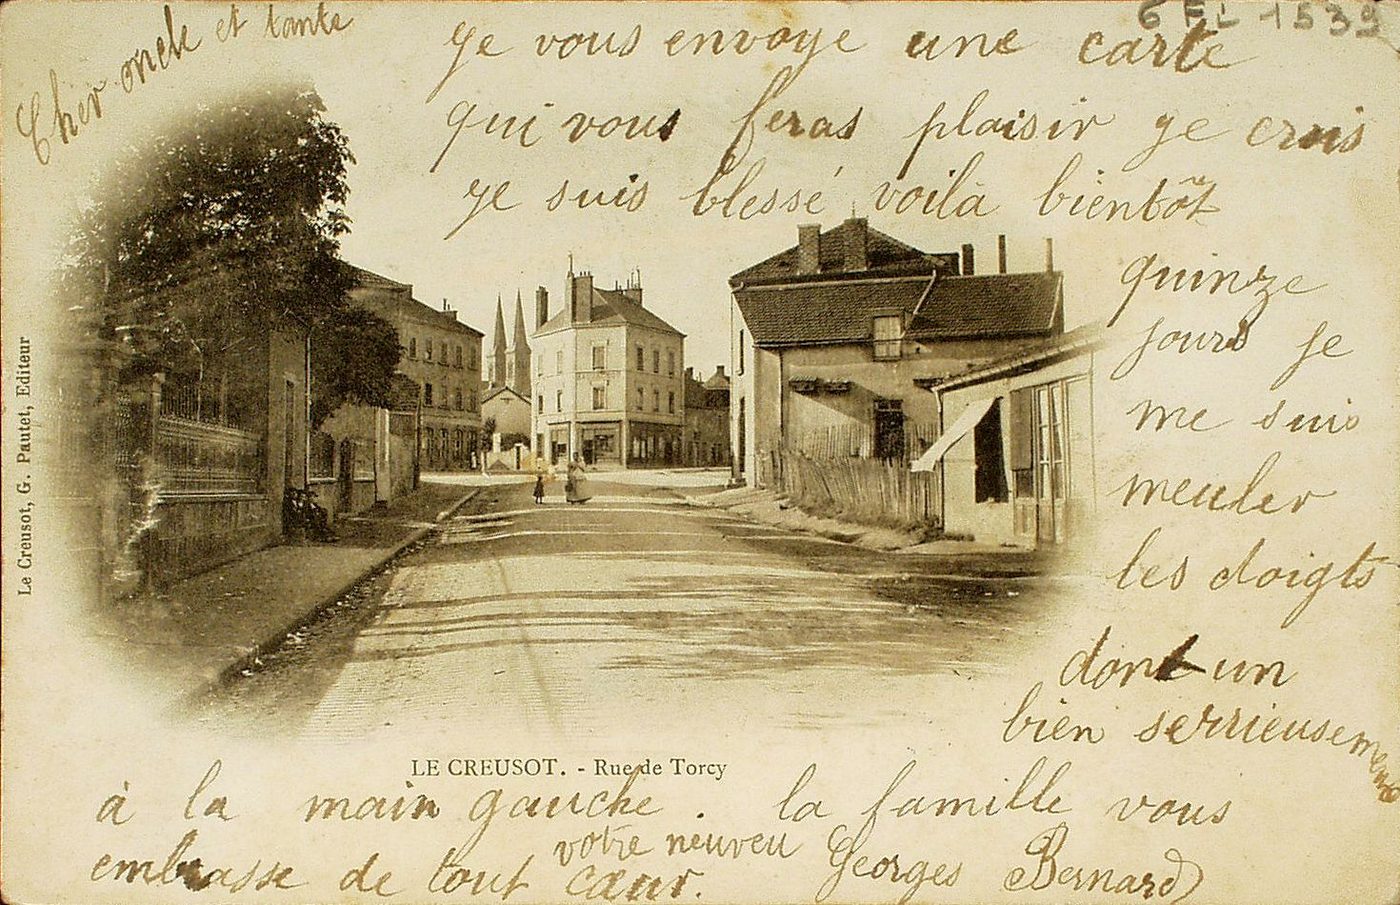 6 FI 1539
Cher oncle et tante
Je vous envoye une carte
qui vous feras plaisir je crois
je suis blessé voilà bientôt
quinze
jours je
me suis
meuler
les doigts
dont un
bien serrieusement
à la main gauche. la famille vous
embrasse de tout cœur.
votre neuveu Georges Bernard
LE CREUSOT. - Rue de Torcy
Le Creusot, G. Pautet, Editeur